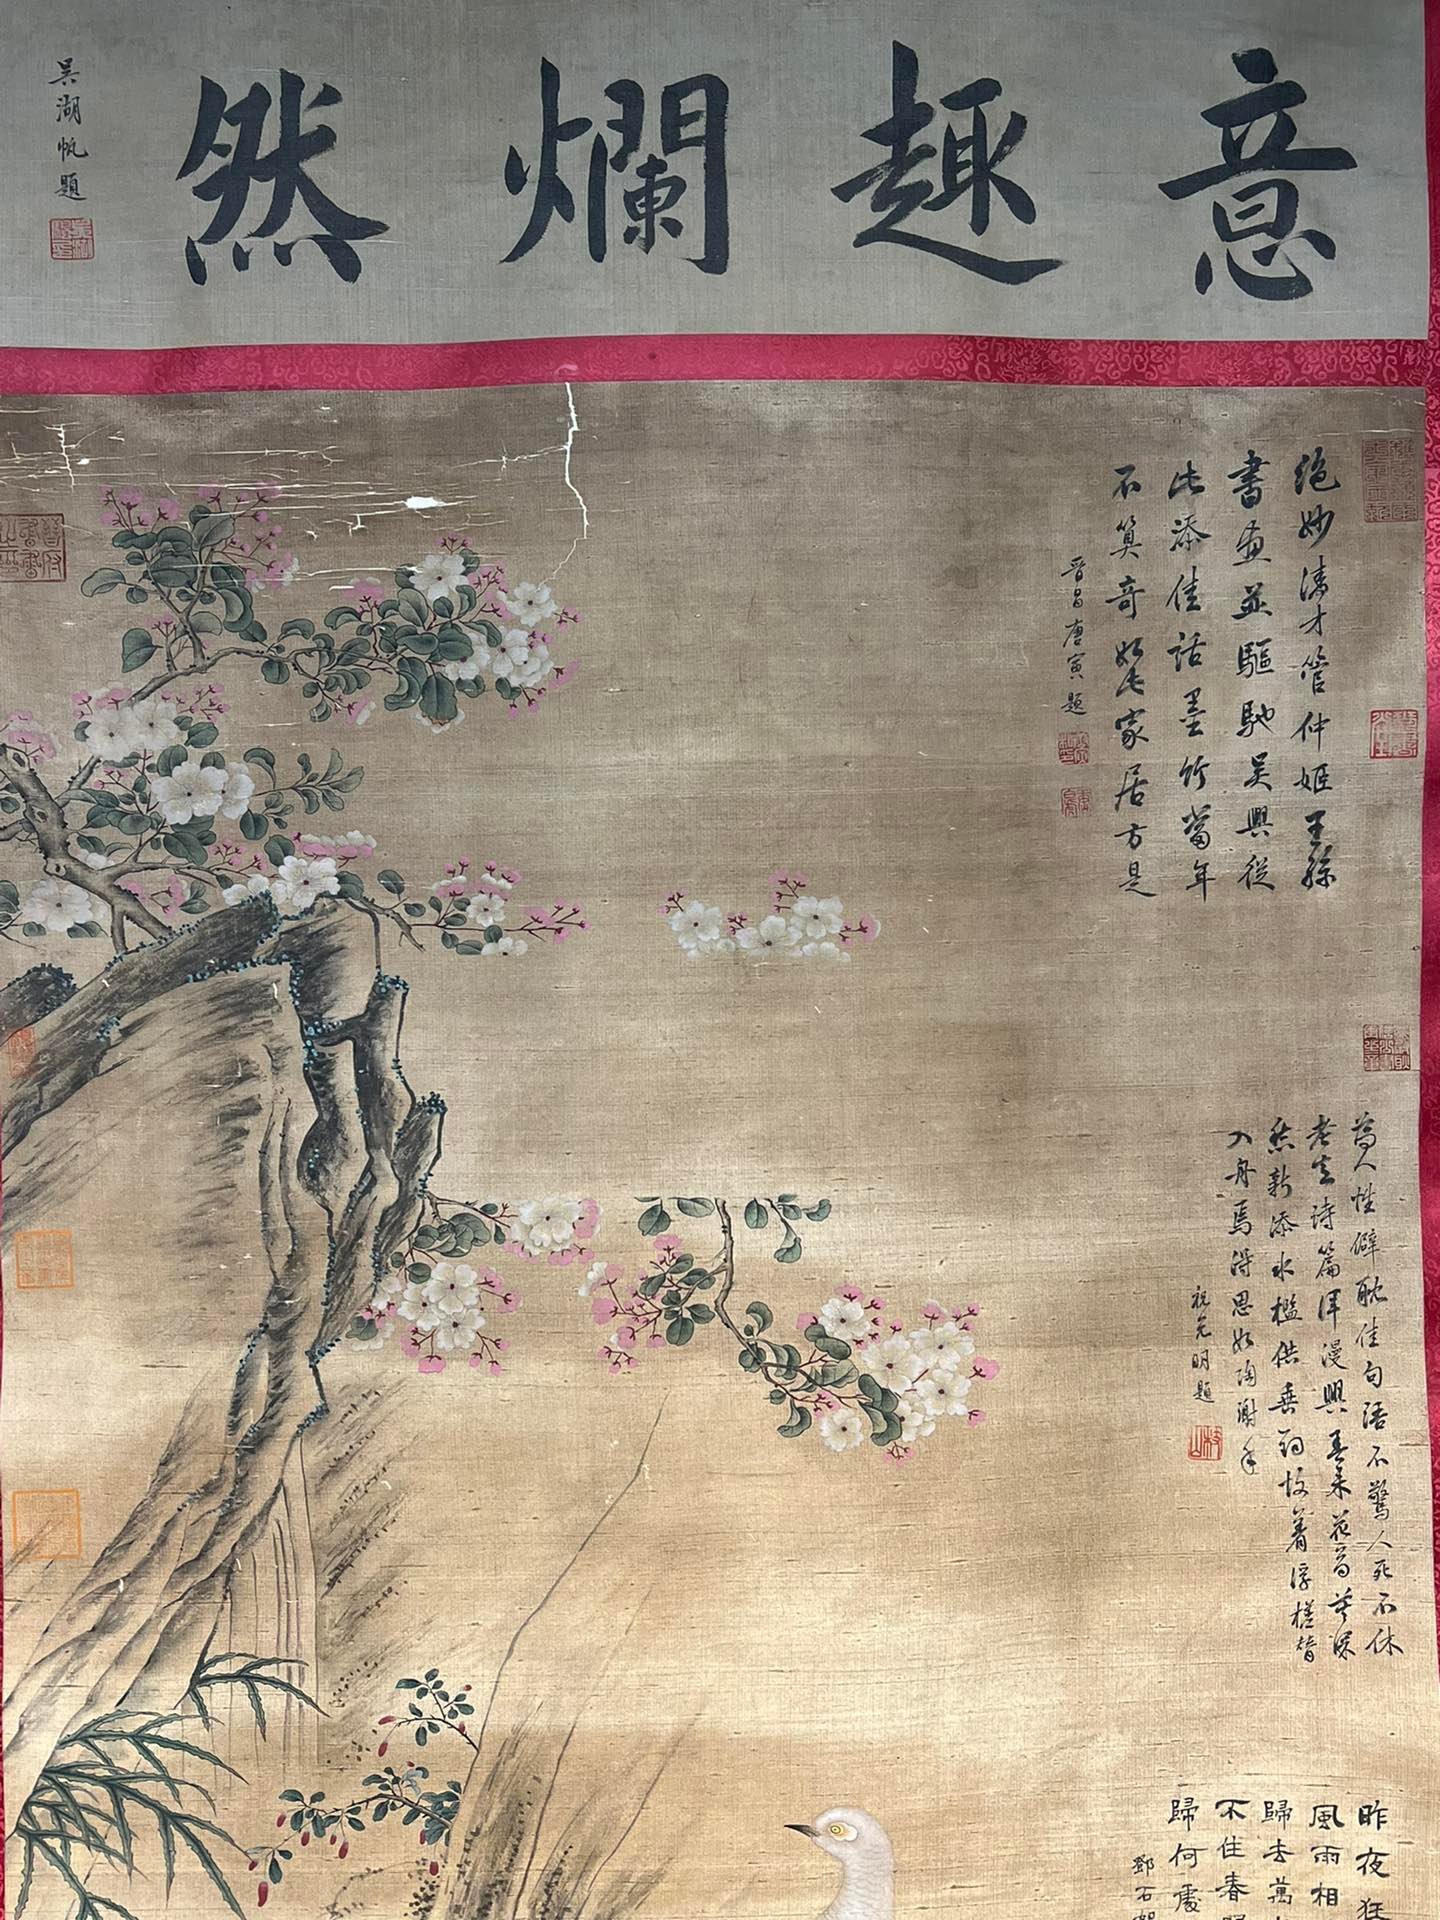 意趣爛然
吳湖帆題
絶妙清才管仲姬王孫
書畫並驅馳吴興從
此添佳話墨竹當年
不算奇如此家居方是
晉昌唐寅題
為人性僻耽佳句語不驚人死不休
老去詩篇渾漫興春来花鸟莫深
愁新添水檻供垂釣故着浮槎替
入舟焉得思如陶謝手
祝允明題
昨夜狂
風雨相
歸去萬
不住春
歸何處
鄧石如